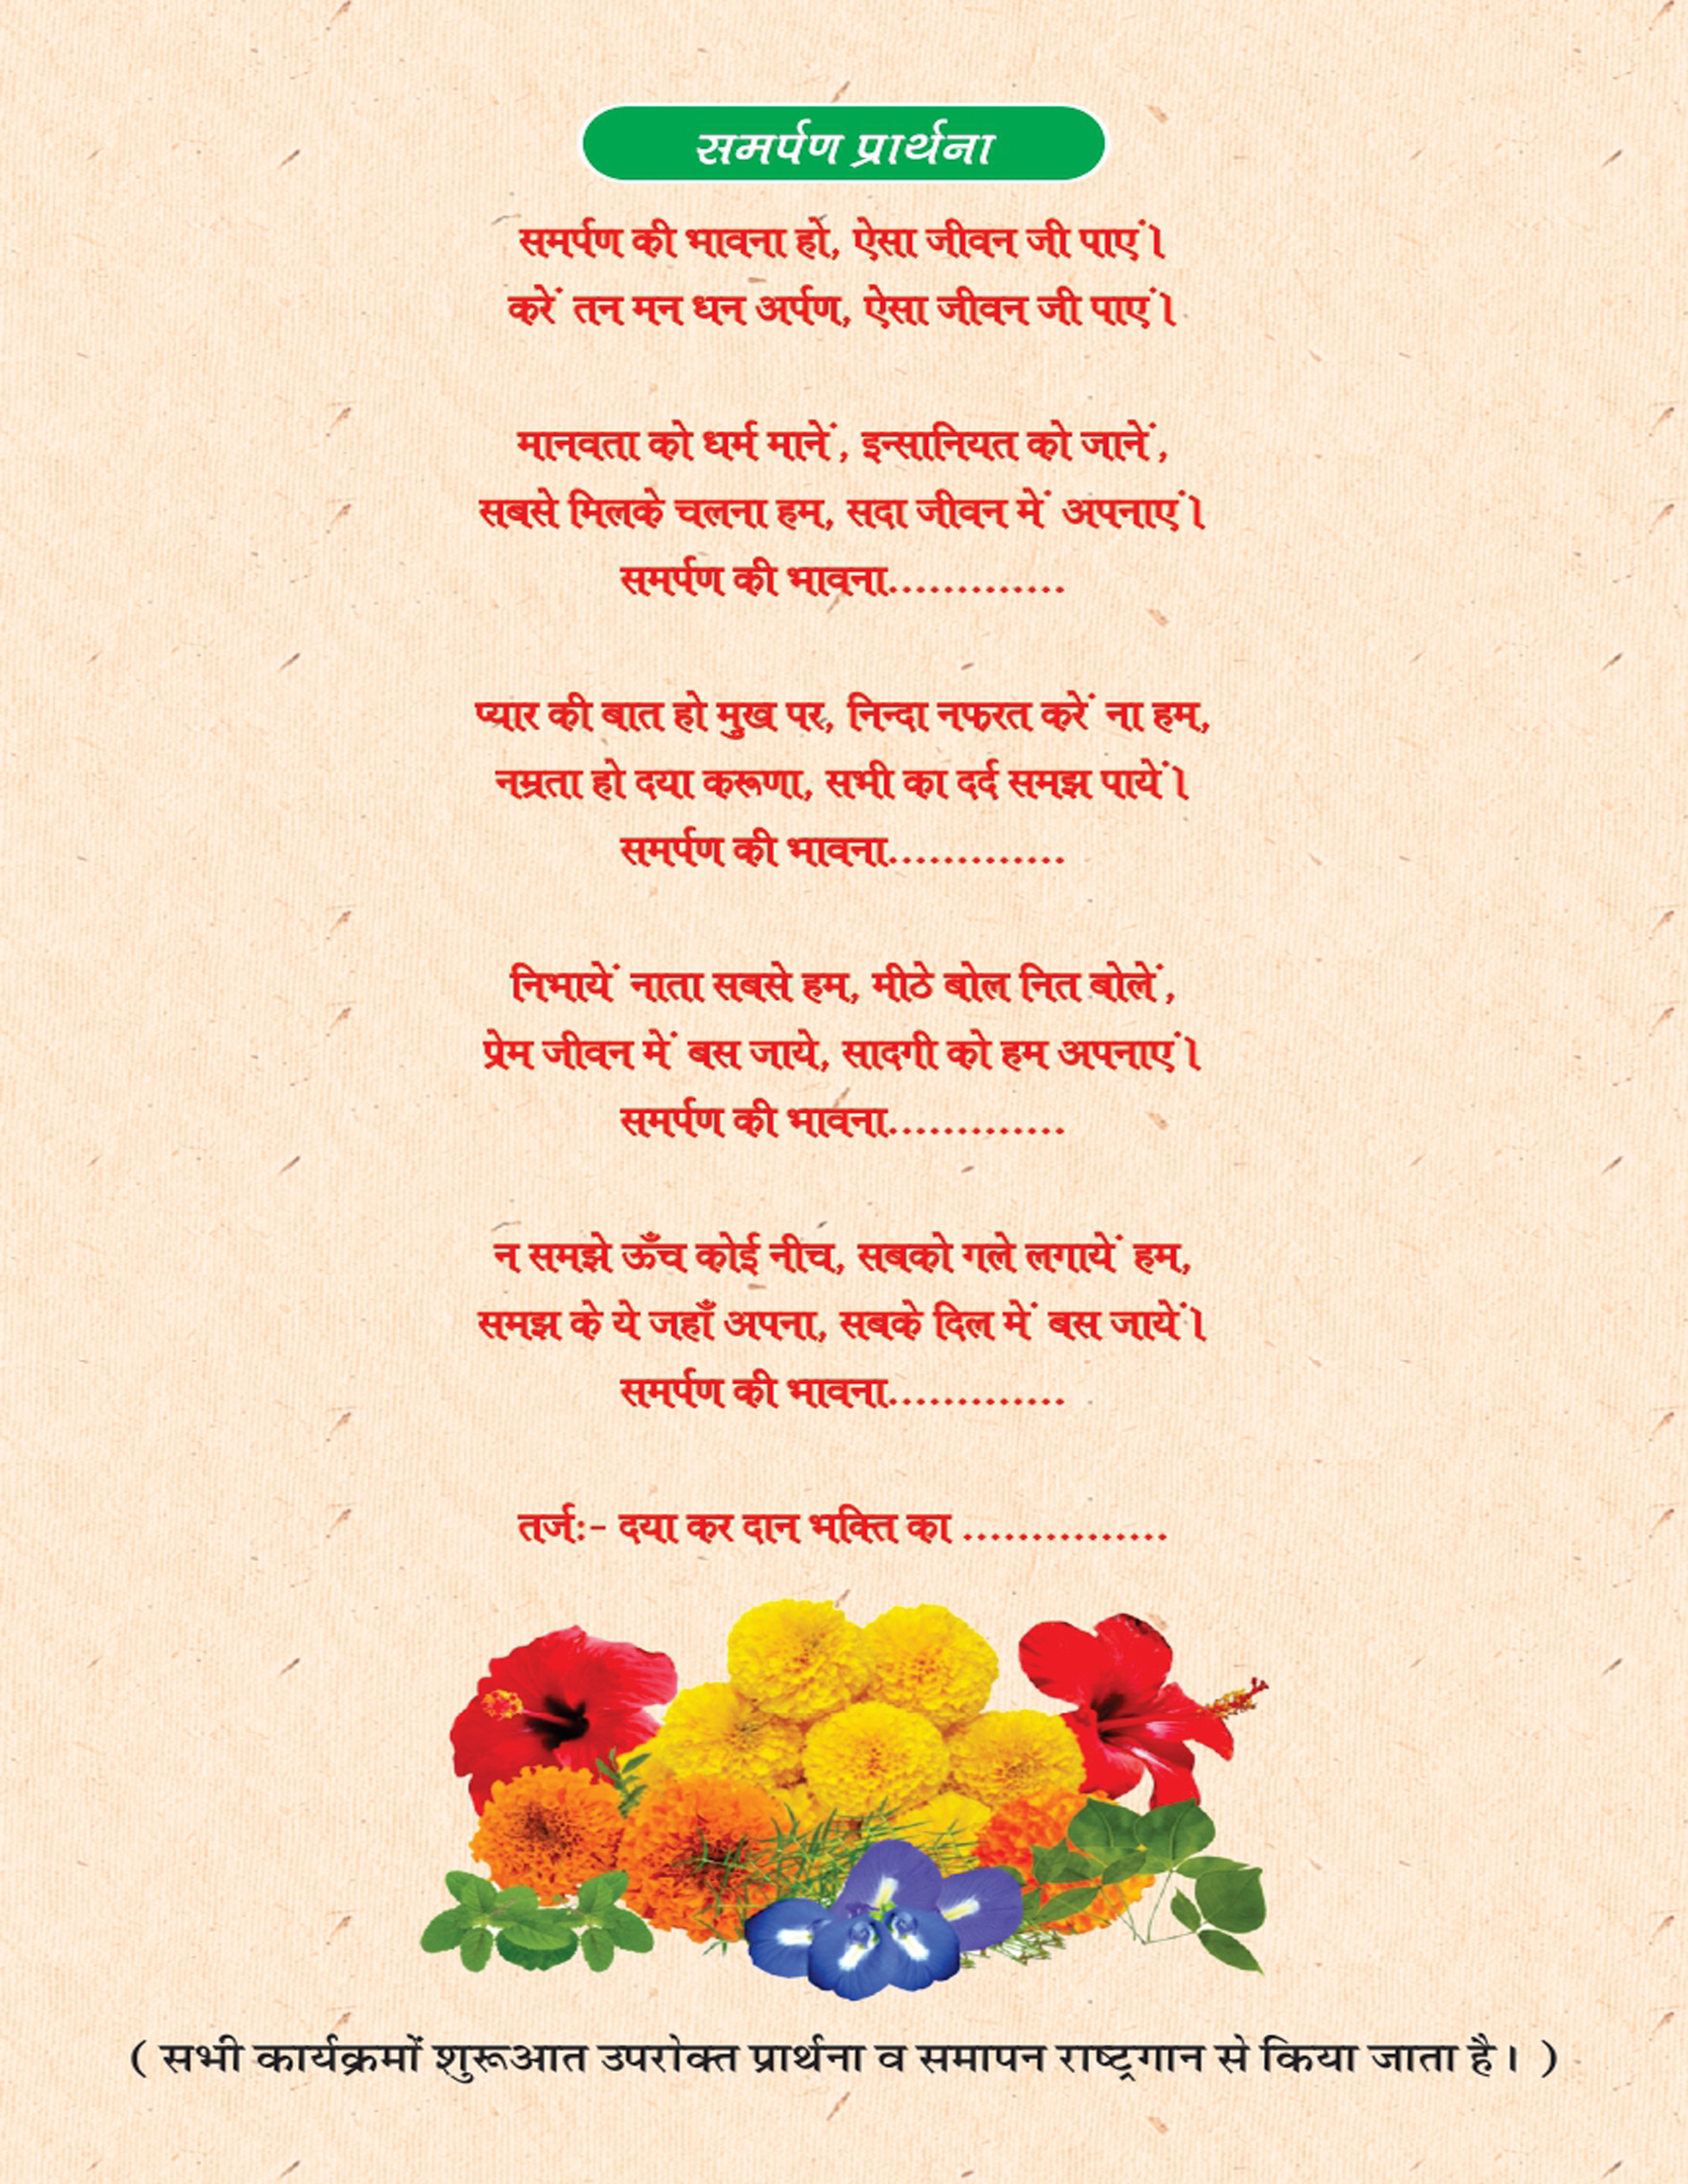 समर्पण प्रार्थना
समर्पण की भावना हो, ऐसा जीवन जी पाएं।
करें तन मन धन अर्पण, ऐसा जीवन जी पाएं।
मानवता को धर्म मानें, इन्सानियत को जानें,
सबसे मिलके चलना हम, सदा जीवन में अपनाएं।
समर्पण की भावना.............
प्यार की बात हो मुख पर, निन्दा नफरत करें ना हम,
नम्रता हो दया करूणा, सभी का दर्द समझ पायें।
समर्पण की भावना.............
निभायें नाता सबसे हम, मीठे बोल नित बोलें,
प्रेम जीवन में बस जाये, सादगी को हम अपनाएं।
समर्पण की भावना.............
न समझे ऊँच कोई नीच, सबको गले लगायें हम,
समझ के ये जहाँ अपना, सबके दिल में बस जायें।
समर्पण की भावना.............
तर्ज:- दया कर दान भक्ति का ...............
( सभी कार्यक्रमों शुरूआत उपरोक्त प्रार्थना व समापन राष्ट्रगान से किया जाता है। )